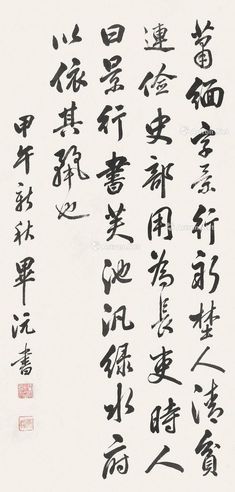 萧缅字景行新埜人清貧
連俭史部用為長吏時人
曰景行書芙池汎緑水府
以依其飊也
甲午新秋畢沅書